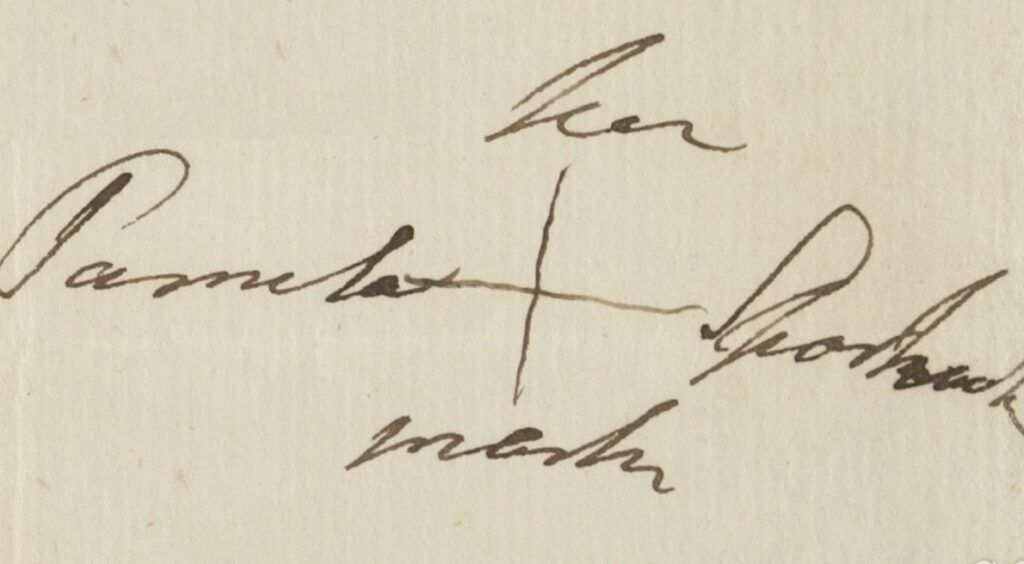 her
Pamela + Sparhawk
mark